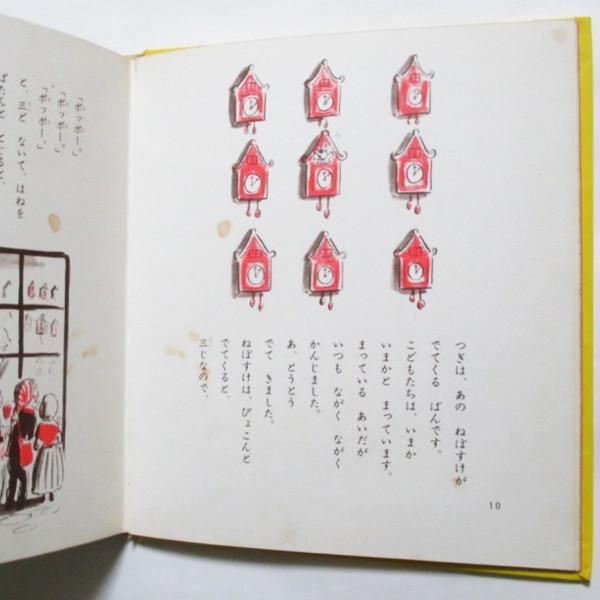 つぎは、あの ねぼすけが
でてくる ばんです。
こどもたちは、いまか
いまかと まっています。
まっている あいだが
いつも ながく ながく
かんじました。
あ、とうとう
でて きました。
ねぼすけは、ぴょこんと
でてくると、
三じなので、
10
「ポッポー。」
「ポッポー。」
「ポッポー。」
と、三ど ないて、はねを